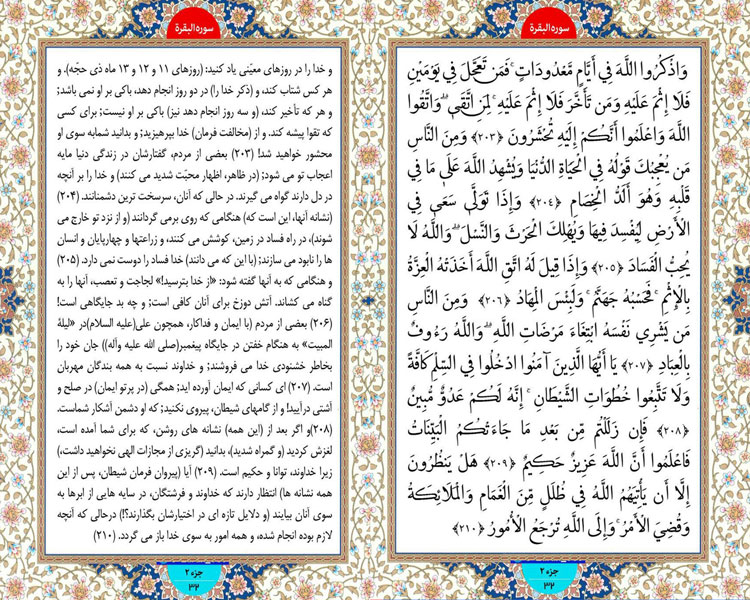 سوره البقرة
وَاذْكُرُوا اللَّهَ فِي أَيَّامٍ مَّعْدُودَاتٍ ۚ فَمَن تَعَجَّلَ فِي يَوْمَيْنِ
فَلَا إِثْمَ عَلَيْهِ وَمَن تَأَخَّرَ فَلَا إِثْمَ عَلَيْهِ ۚ لِمَنِ اتَّقَىٰ ۗ وَاتَّقُوا
اللَّهَ وَاعْلَمُوا أَنَّكُمْ إِلَيْهِ تُحْشَرُونَ ﴿٢٠٣﴾ وَمِنَ النَّاسِ
مَن يُعْجِبُكَ قَوْلُهُ فِي الْحَيَاةِ الدُّنْيَا وَيُشْهِدُ اللَّهَ عَلَىٰ مَا فِي
قَلْبِهِ وَهُوَ أَلَدُّ الْخِصَامِ ﴿٢٠٤﴾ وَإِذَا تَوَلَّىٰ سَعَىٰ فِي
الْأَرْضِ لِيُفْسِدَ فِيهَا وَيُهْلِكَ الْحَرْثَ وَالنَّسْلَ ۗ وَاللَّهُ لَا
يُحِبُّ الْفَسَادَ ﴿٢٠٥﴾ وَإِذَا قِيلَ لَهُ اتَّقِ اللَّهَ أَخَذَتْهُ الْعِزَّةُ
بِالْإِثْمِ ۚ فَحَسْبُهُ جَهَنَّمُ ۚ وَلَبِئْسَ الْمِهَادُ ﴿٢٠٦﴾ وَمِنَ النَّاسِ
مَن يَشْرِي نَفْسَهُ ابْتِغَاءَ مَرْضَاتِ اللَّهِ ۗ وَاللَّهُ رَءُوفٌ
بِالْعِبَادِ ﴿٢٠٧﴾ يَا أَيُّهَا الَّذِينَ آمَنُوا ادْخُلُوا فِي السِّلْمِ كَافَّةً
وَلَا تَتَّبِعُوا خُطُوَاتِ الشَّيْطَانِ ۚ إِنَّهُ لَكُمْ عَدُوٌّ مُّبِينٌ
﴿٢٠٨﴾ فَإِن زَلَلْتُم مِّن بَعْدِ مَا جَاءَتْكُمُ الْبَيِّنَاتُ
فَاعْلَمُوا أَنَّ اللَّهَ عَزِيزٌ حَكِيمٌ ﴿٢٠٩﴾ هَلْ يَنظُرُونَ
إِلَّا أَن يَأْتِيَهُمُ اللَّهُ فِي ظُلَلٍ مِّنَ الْغَمَامِ وَالْمَلَائِكَةُ
وَقُضِيَ الْأَمْرُ ۚ وَإِلَى اللَّهِ تُرْجَعُ الْأُمُورُ ﴿٢١٠﴾
جزء ۲
۳۲
سوره البقرة
و خدا را در روزهای معیّنی یاد کنید: (روزهای ۱۱ و ۱۲ و ۱۳ ماه ذی حجّه). و
هر کس شتاب کند، و (ذکر خدا را) در دو روز انجام دهد، باکی بر او نمی باشد;
و هر که تأخیر کند، (و سه روز انجام دهد نیز) باکی بر او نیست; برای کسی
که تقوا پیشه کند. و از (مخالفت فرمان) خدا بپرهیزید; و بدانید شمابه سوی او
محشور خواهید شد! (۲۰۳) بعضی از مردم، گفتارشان در زندگی دنیا مایه
اعجاب تو می شود; (در ظاهر، اظهار محبّت شدید می کنند) و خدا را بر آنچه
در دل دارند گواه می گیرند. در حالی که آنان، سرسخت ترین دشمنانند. (۲۰۴)
(نشانه آنها، این است که) هنگامی که روی برمی گردانند (و از نزد تو خارج می
شوند)، در راه فساد در زمین، کوشش می کنند، و زراعتها و چهارپایان و انسان
ها را نابود می سازند; (با این که می دانند) خدا فساد را دوست نمی دارد. (۲۰۵)
و هنگامی که به آنها گفته شود: «از خدا بترسید!» لجاجت و تعصب، آنها را به
گناه می کشاند. آتش دوزخ برای آنان کافی است; و چه بد جایگاهی است!
(۲۰۶) بعضی از مردم (با ایمان و فداکار، همچون علی(علیه السلام)در «لیلة
المبیت» به هنگام خفتن در جایگاه پیغمبر(صلی الله علیه وآله)) جان خود را
بخاطر خشنودی خدا می فروشند; و خداوند نسبت به همه بندگان مهربان
است. (۲۰۷) ای کسانی که ایمان آورده اید; همگی (در پرتو ایمان) در صلح و
آشتی درآیید! و از گامهای شیطان، پیروی نکنید; که او دشمن آشکار شماست.
(۲۰۸)و اگر بعد از (این همه) نشانه های روشن، که برای شما آمده است،
لغزش کردید (و گمراه شدید)، بدانید (گریزی از مجازات الهی نخواهید داشت،)
زیرا خداوند، توانا و حکیم است. (۲۰۹) آیا (پیروان فرمان شیطان، پس از این
همه نشانه ها) انتظار دارند که خداوند و فرشتگان، در سایه هایی از ابرها به
سوی آنان بیایند (و دلایل تازه ای در اختیارشان بگذارند؟!) درحالی که آنچه
لازم بوده انجام شده، و همه امور به سوی خدا باز می گردد. (۲۱۰)
جزء ۲
۳۲